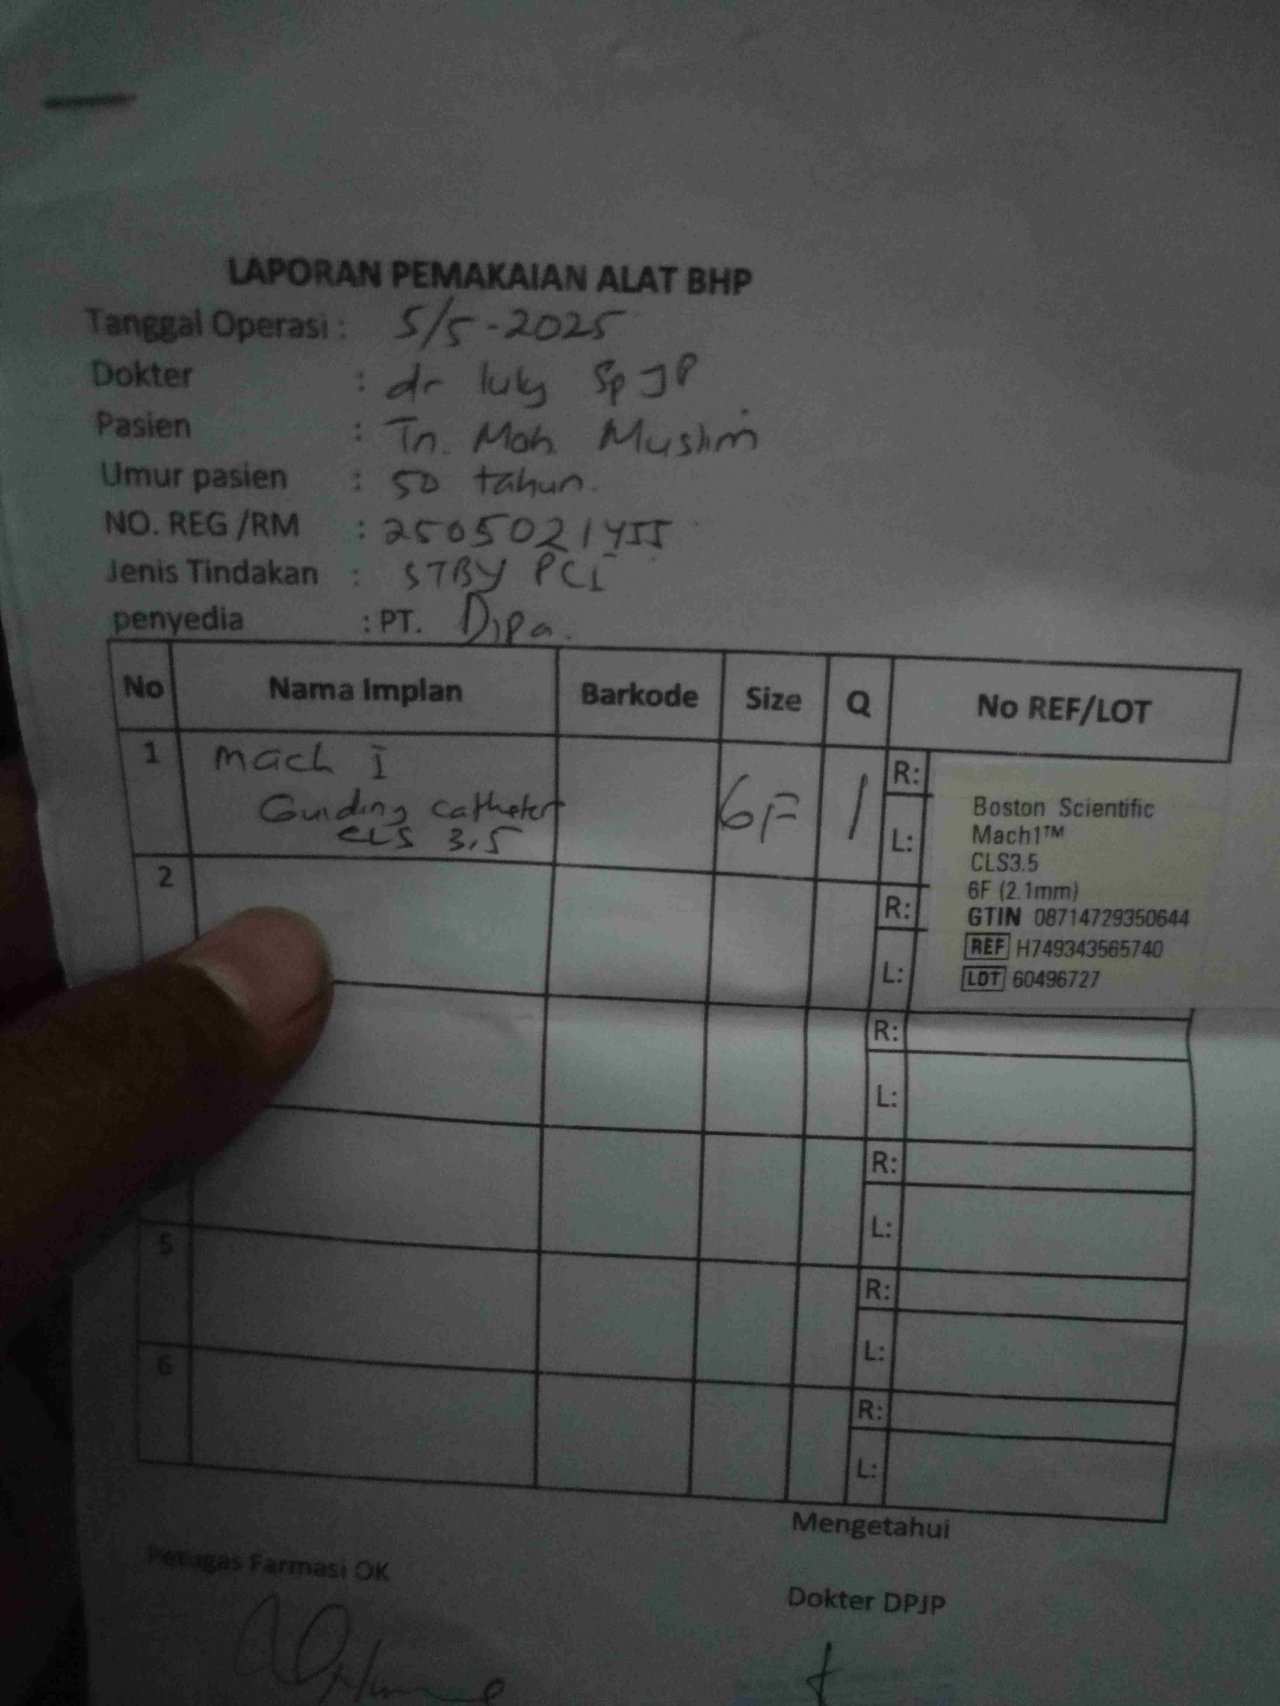 LAPORAN PEMAKAIAN ALAT BHP
Tanggal Operasi : 5/5-2025
Dokter : dr luly Sp JP
Pasien : Tn. Moh. Muslim
Umur pasien : 50 tahun.
NO. REG /RM : 250502
Jenis Tindakan : STBY PCI
penyedia : PT. Dipa.
No Nama Implan Barkode Size Q No REF/LOT
1 Mach I 6F 1 R:
Guiding catheter L:
CLS 3,5
Boston Scientific
Mach1™
CLS3.5
6F (2.1mm)
GTIN 08714729350644
REF H749343565740
LOT 60496727
2 R:
L:
R:
L:
R:
L:
5 R:
L:
6 R:
L:
Mengetahui
Petugas Farmasi OK
Dokter DPJP